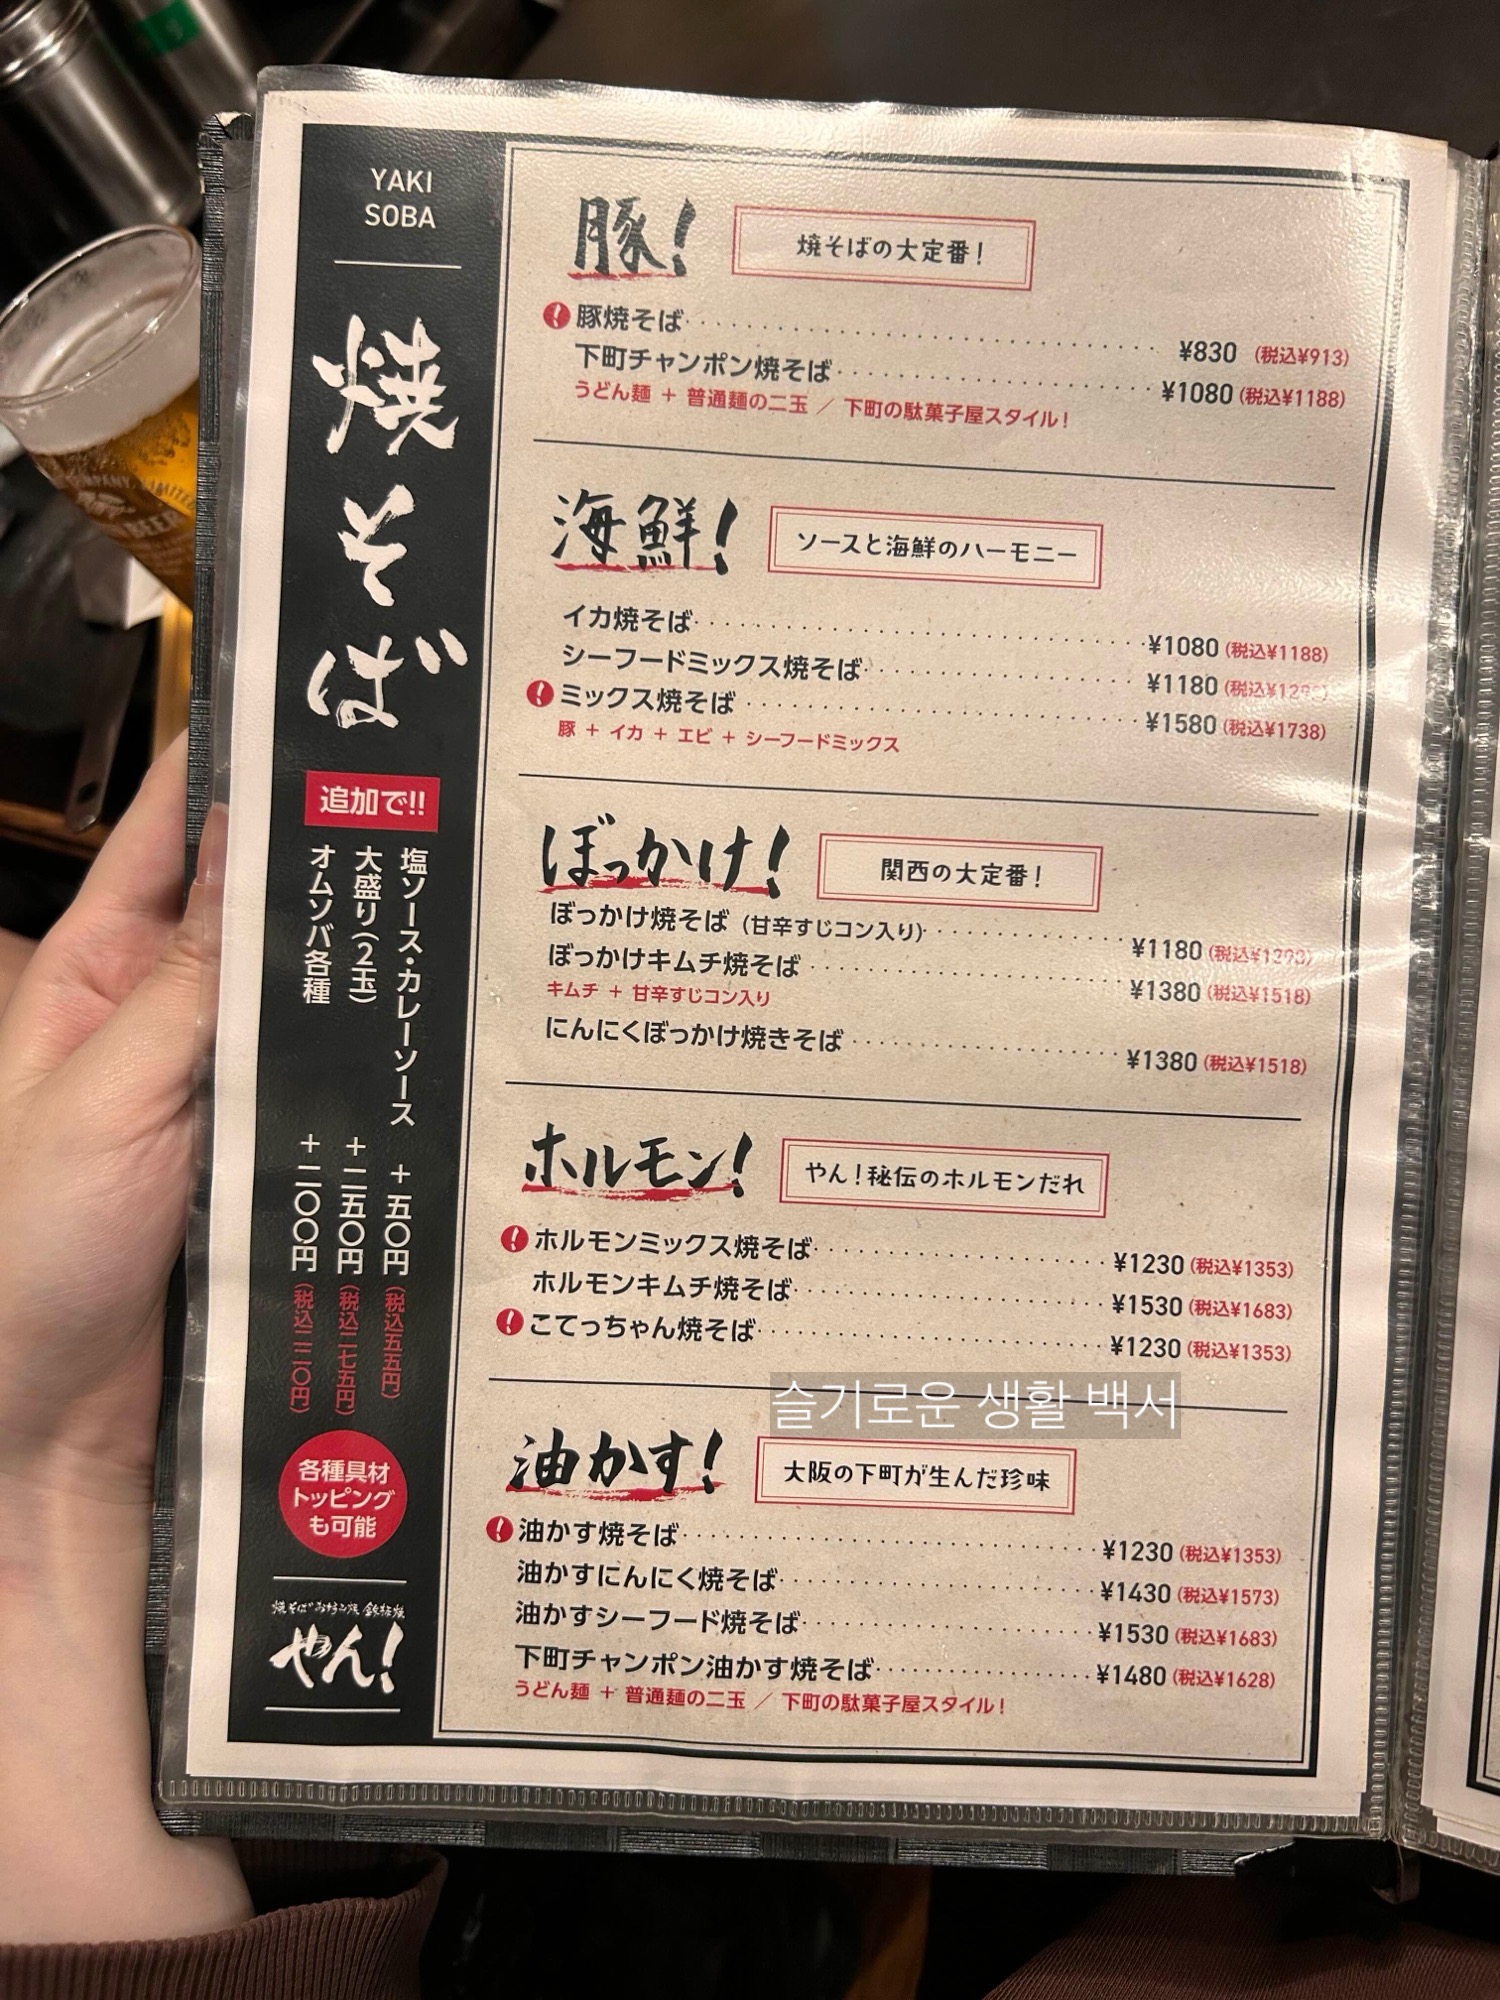 YAKI
SOBA
焼そば
追加で!!
塩ソース・カレーソース +五〇円(税込五五円)
大盛り(2玉) +二五〇円(税込二七五円)
オムソバ各種 +二〇〇円(税込二二〇円)
各種具材
トッピング
も可能
焼そば お好み焼 鉄板焼
やん!
豚! 焼そばの大定番!
! 豚焼そば ¥830 (税込¥913)
下町チャンポン焼そば ¥1080 (税込¥1188)
うどん麺 + 普通麺の二玉 / 下町の駄菓子屋スタイル!
海鮮! ソースと海鮮のハーモニー
イカ焼そば ¥1080 (税込¥1188)
シーフードミックス焼そば ¥1180
! ミックス焼そば ¥1580 (税込¥1738)
豚 + イカ + エビ + シーフードミックス
ぼっかけ! 関西の大定番!
ぼっかけ焼そば (甘辛すじコン入り) ¥1180
ぼっかけキムチ焼そば ¥1380 (税込¥1518)
キムチ + 甘辛すじコン入り
にんにくぼっかけ焼きそば ¥1380 (税込¥1518)
ホルモン! やん!秘伝のホルモンだれ
! ホルモンミックス焼そば ¥1230 (税込¥1353)
ホルモンキムチ焼そば ¥1530 (税込¥1683)
! こてっちゃん焼そば ¥1230 (税込¥1353)
슬기로운 생활 백서
油かす! 大阪の下町が生んだ珍味
! 油かす焼そば ¥1230 (税込¥1353)
油かすにんにく焼そば ¥1430 (税込¥1573)
油かすシーフード焼そば ¥1530 (税込¥1683)
下町チャンポン油かす焼そば ¥1480 (税込¥1628)
うどん麺 + 普通麺の二玉 / 下町の駄菓子屋スタイル!